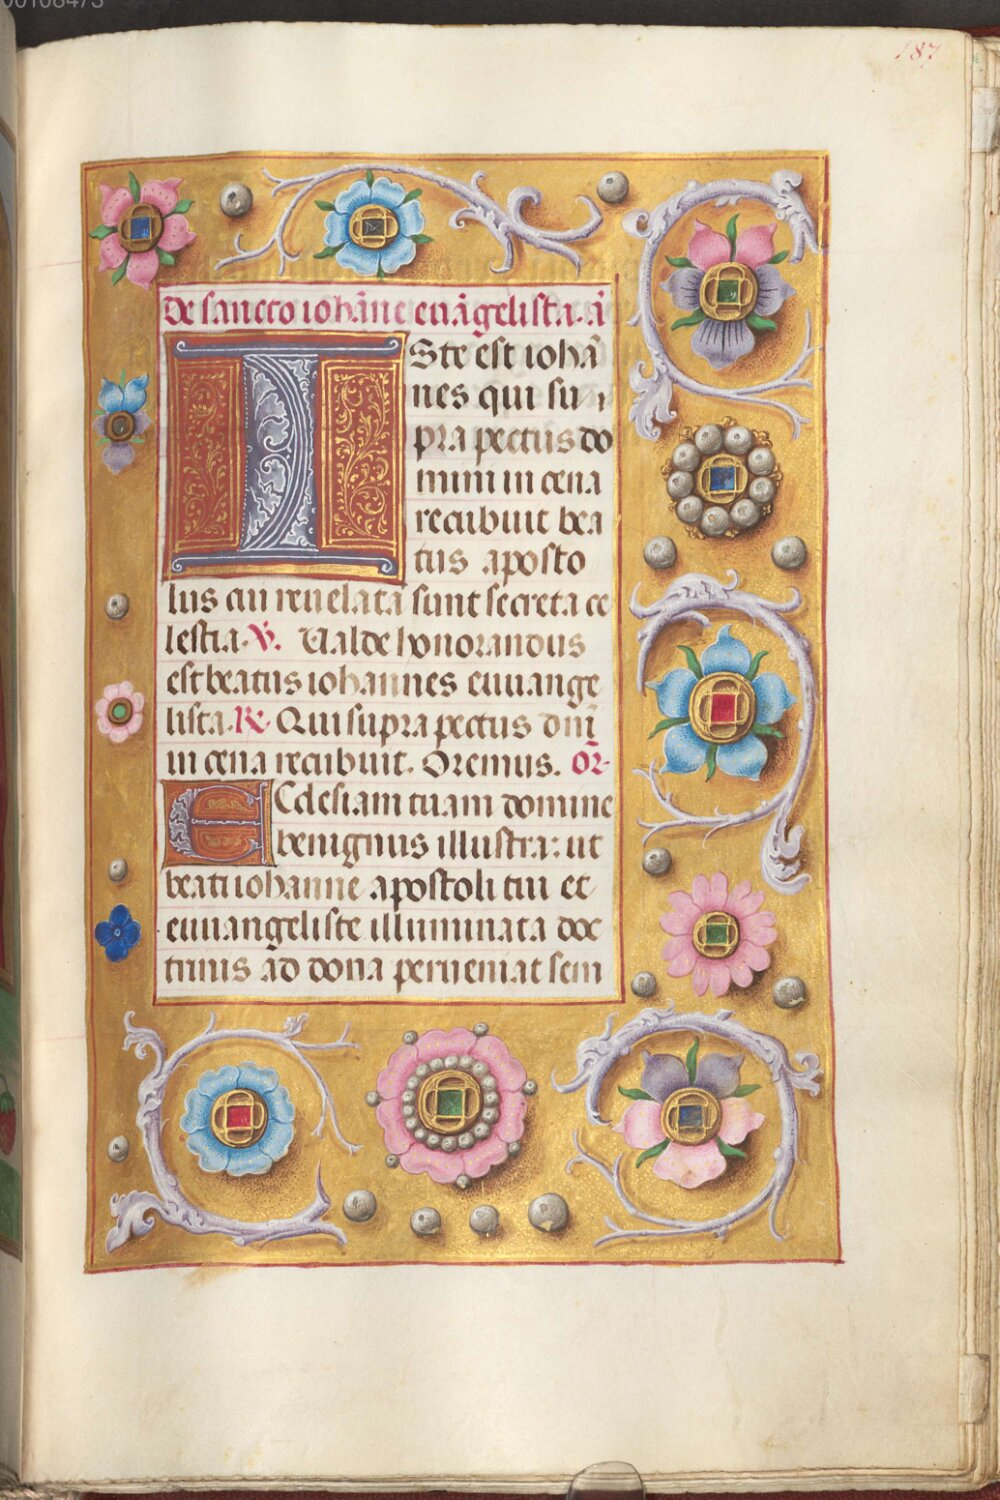 00108473
187
De sancto iohāne euāgelista. ā
ISte est iohā
nes qui su
pra pectus do
mini in cena
recubuit bea
tus aposto
lus cui reuelata sunt secreta ce
lestia. V. Ualde honorandus
est beatus iohannes euuange
lista. R. Qui supra pectus dnī
in cena recubuit. Oremus. Or̄
ECclesiam tuam domine
benignus illustra: ut
beati iohanne apostoli tui et
euuangeliste illuminata doc
trinis ad dona perueniat sem